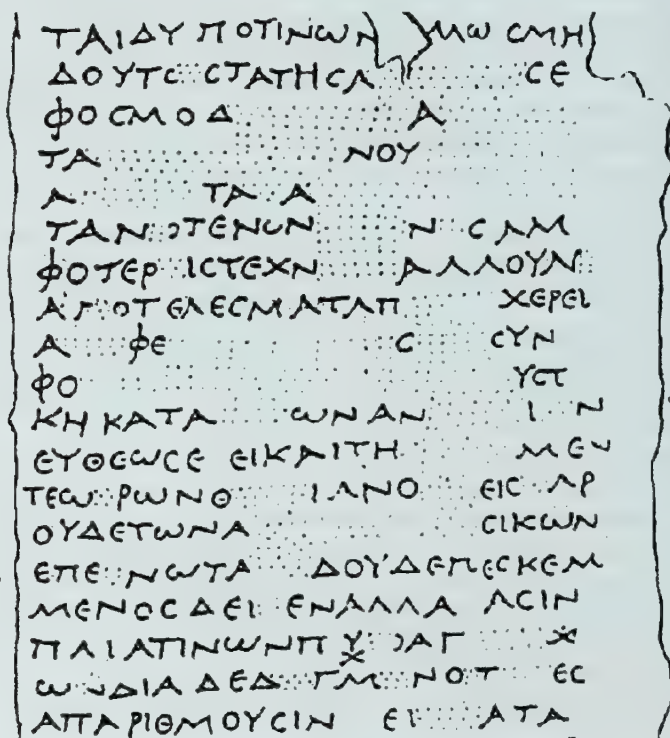 ΤΑΙΔΥ ΠΟΤΙΝωΝ Μω CΜΗ
ΔΟΥΤC CΤΑΤΗCΑ CΕ
ΦΟCΜΟΔ Α
ΤΑ ΝΟΥ
Α ΤΑ Α
ΤΑΝ ΟΤΕΝωΝ Ν CΑΜ
ΦΟΤΕΡ ΙCΤΕΧΝ ΑΛΛΟΥΝ
ΑΠΟΤΕΛΕCΜΑΤΑΠ ΧΕΡΕΙ
Α ΦΕ C CΥΝ
ΦΟ ΥCΤ
ΚΗ ΚΑΤΑ ωΝΑΝ Ι Ν
ΕΥΘΕωCΕ ΕΙΚΑΙΤΗ ΜΕΝ
ΤΕω ΡωΝΘ ΙΑΝΟ ΕΙC ΑΡ
ΟΥΔΕΤωΝΑ CΙΚωΝ
ΕΠΕ ΝωΤΑ ΔΟΥΔΕΠΕCΚΕΜ
ΜΕΝΟCΔΕΙ ΕΝΑΛΛΑ ΑCΙΝ
ΠΑΙΑΠΙΝωΝΠΥ ΟΑΓ Χ
ωΝΔΙΑ ΔΕΔ ΓΜ ΝΟΤ ΕC
ΑΠΑΡΙΘΜΟΥCΙΝ ΕΙ ΑΤΑ